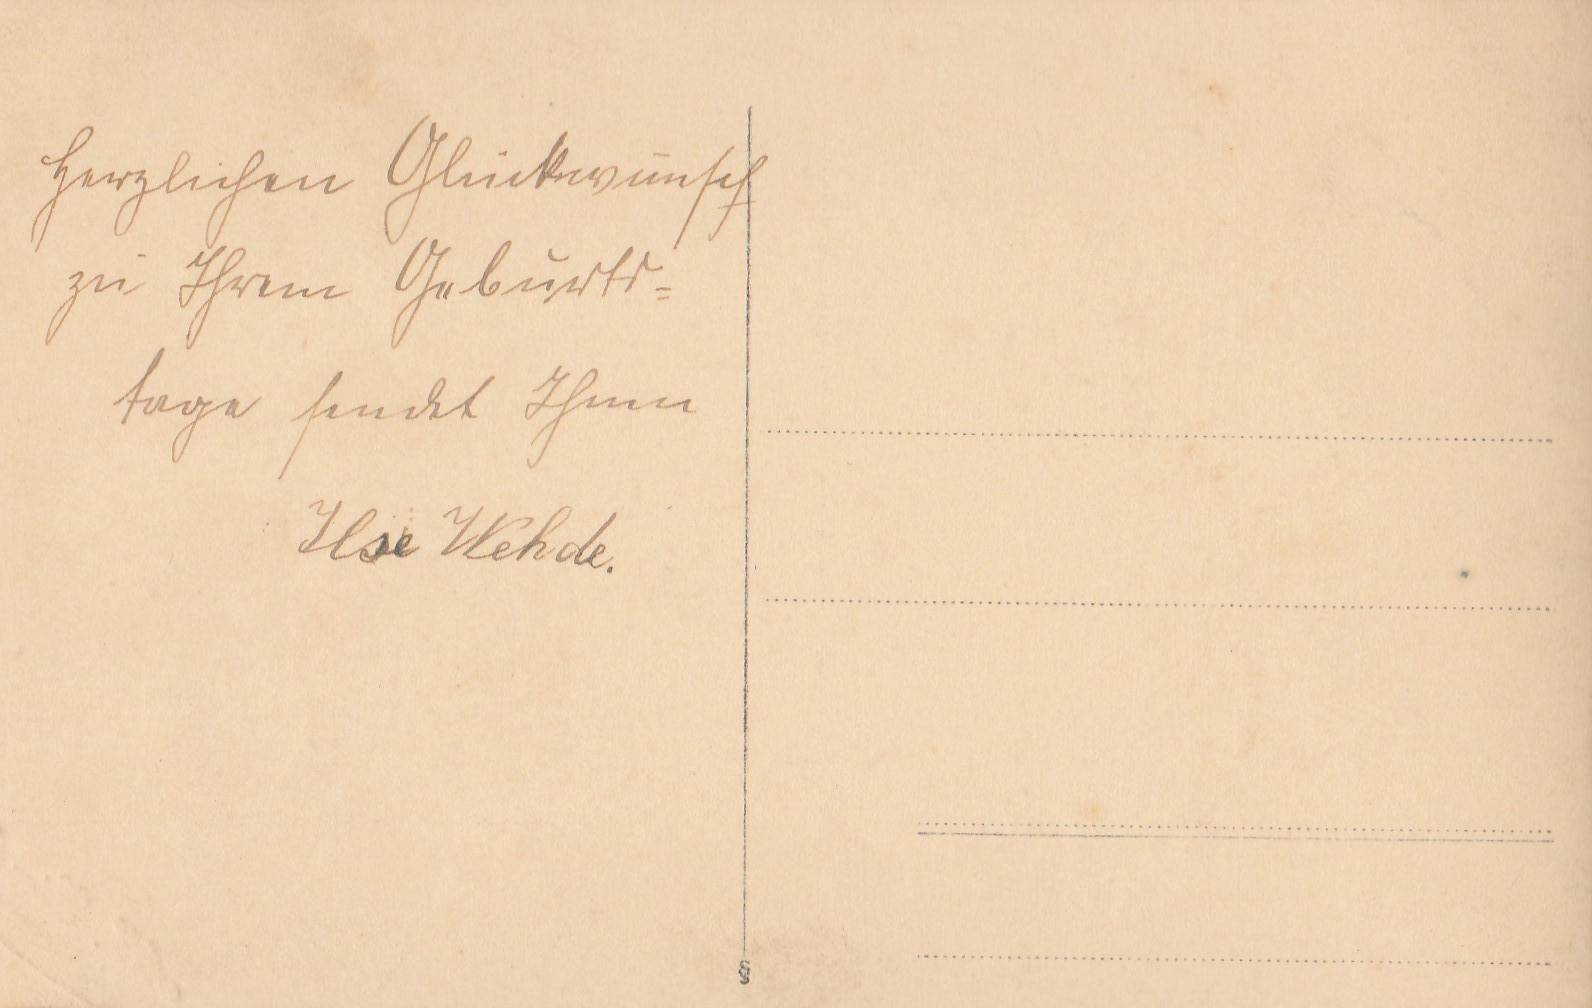 Herzlichen Glückwunsch
zu Ihrem Geburts=
tage sendet Ihnen
Ilse Wehde.